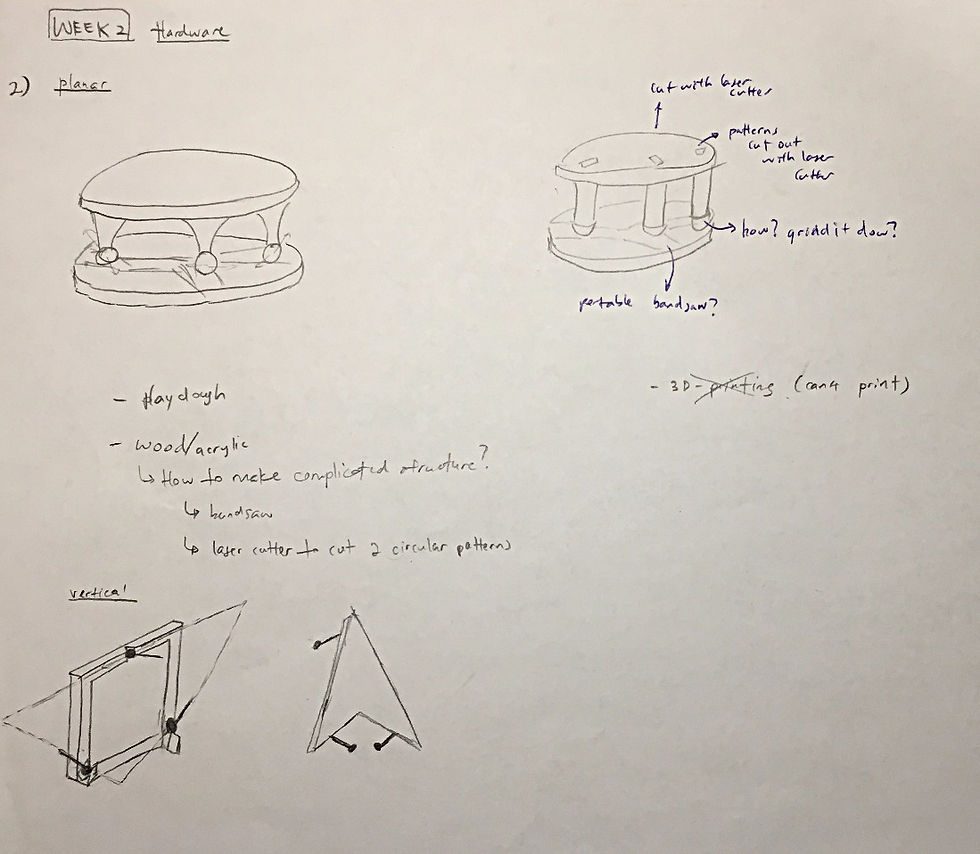 WEEK 2 Hardware
2) planar
cut with laser
cutter
patterns
cut out
with laser
cutter
how? gridd it dow?
portable bandsaw?
- playdough
- 3D-printing (can't print)
- wood/acrylic
↳ How to make complicated structure?
↳ bandsaw
↳ laser cutter to cut 2 circular patterns
vertical